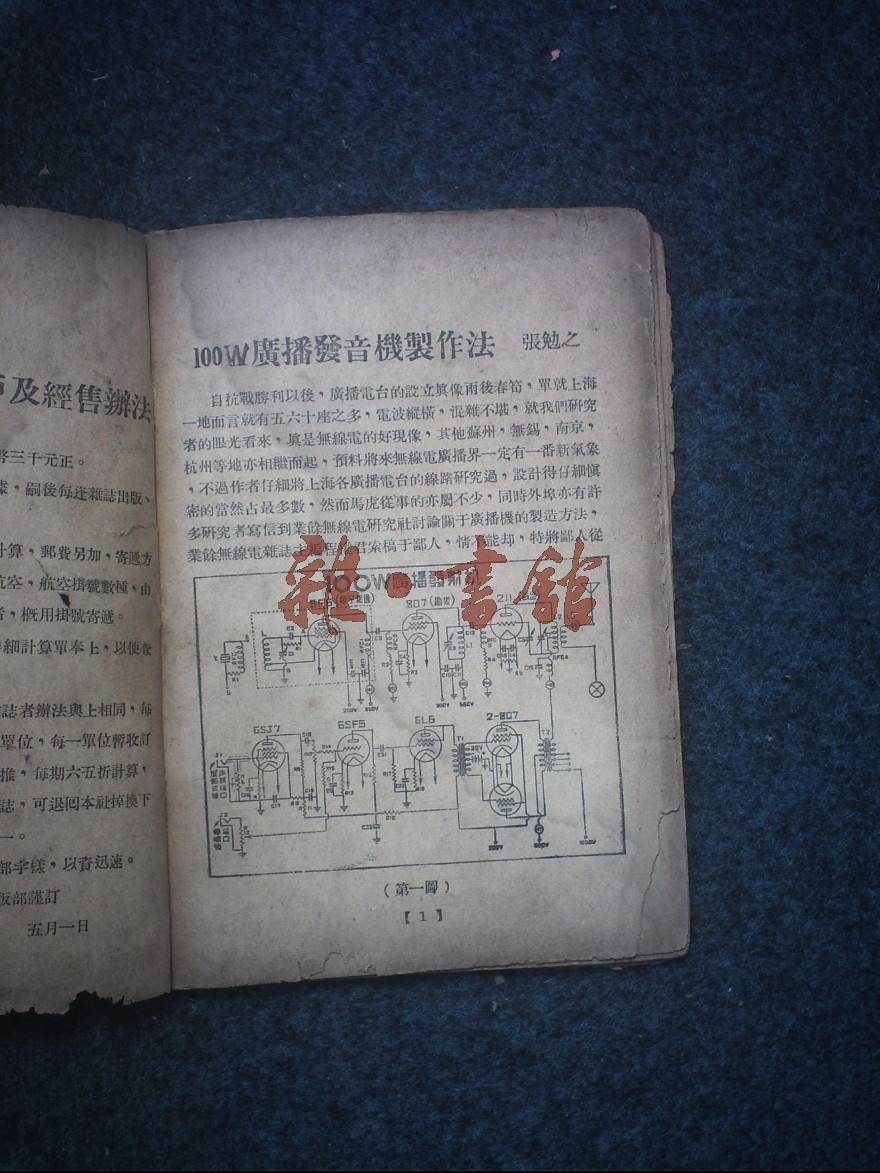 100W廣播發音機製作法 張勉之
自抗戰勝利以後，廣播電台的設立眞像雨後春筍，單就上海
一地而言就有五六十座之多，電波縱橫，混雜不堪，就我們研究
者的眼光看來，眞是無線電的好現像，其他蘇州，無錫，南京，
杭州等地亦相繼而起，預料將來無線電廣播界一定有一番新氣象
，不過作者仔細將上海各廣播電台的線路研究過，設計得仔細愼
密的當然占最多數，然而馬虎從事的亦屬不少，同時外埠亦有許
多研究者寫信到業餘無線電研究社討論關于廣播機的製造方法，
業餘無線電雜誌主 程 君索稿于鄙人，情不能却，特將鄙人從
100W廣播發射機
807
211
6SJ7
6SF5
6L6
2-807
（第一圖）
【1】
及經售辦法
幣三千元正。
嗣後每逢雜誌出版、
計算，郵費另加，寄遞方
航空，航空掛號數種，由
者，概用掛號寄遞。
細計算單奉上，以便查
誌者辦法與上相同，每
單位，每一單位暫收訂
推，每期六五折計算，
誌，可退回本社掉換下
一。
部字樣，以資迅速。
版部謹訂
五月一日
雜·書館